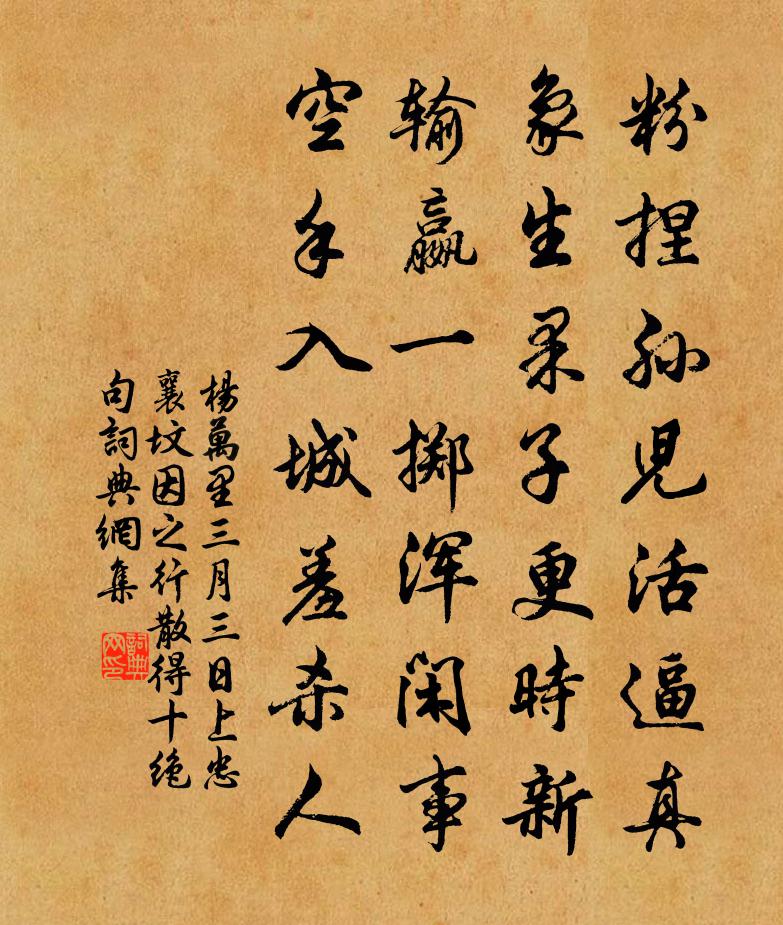 粉捏孙児活逼真
象生果子更時新
输赢一掷浑闲事
空手入城羞杀人
楊萬里三月三日上忠
襄坟因之行散得十绝
句詞典網集
詞典网印